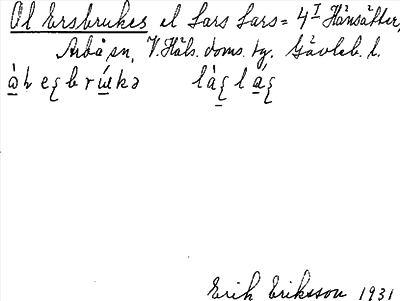 Ol Ersbrukes el Lars Lars = 4ᴵ Hånsätter,
Arbå sn, V. Häls. doms. tg. Gävleb. l.
Erik Eriksson 1931